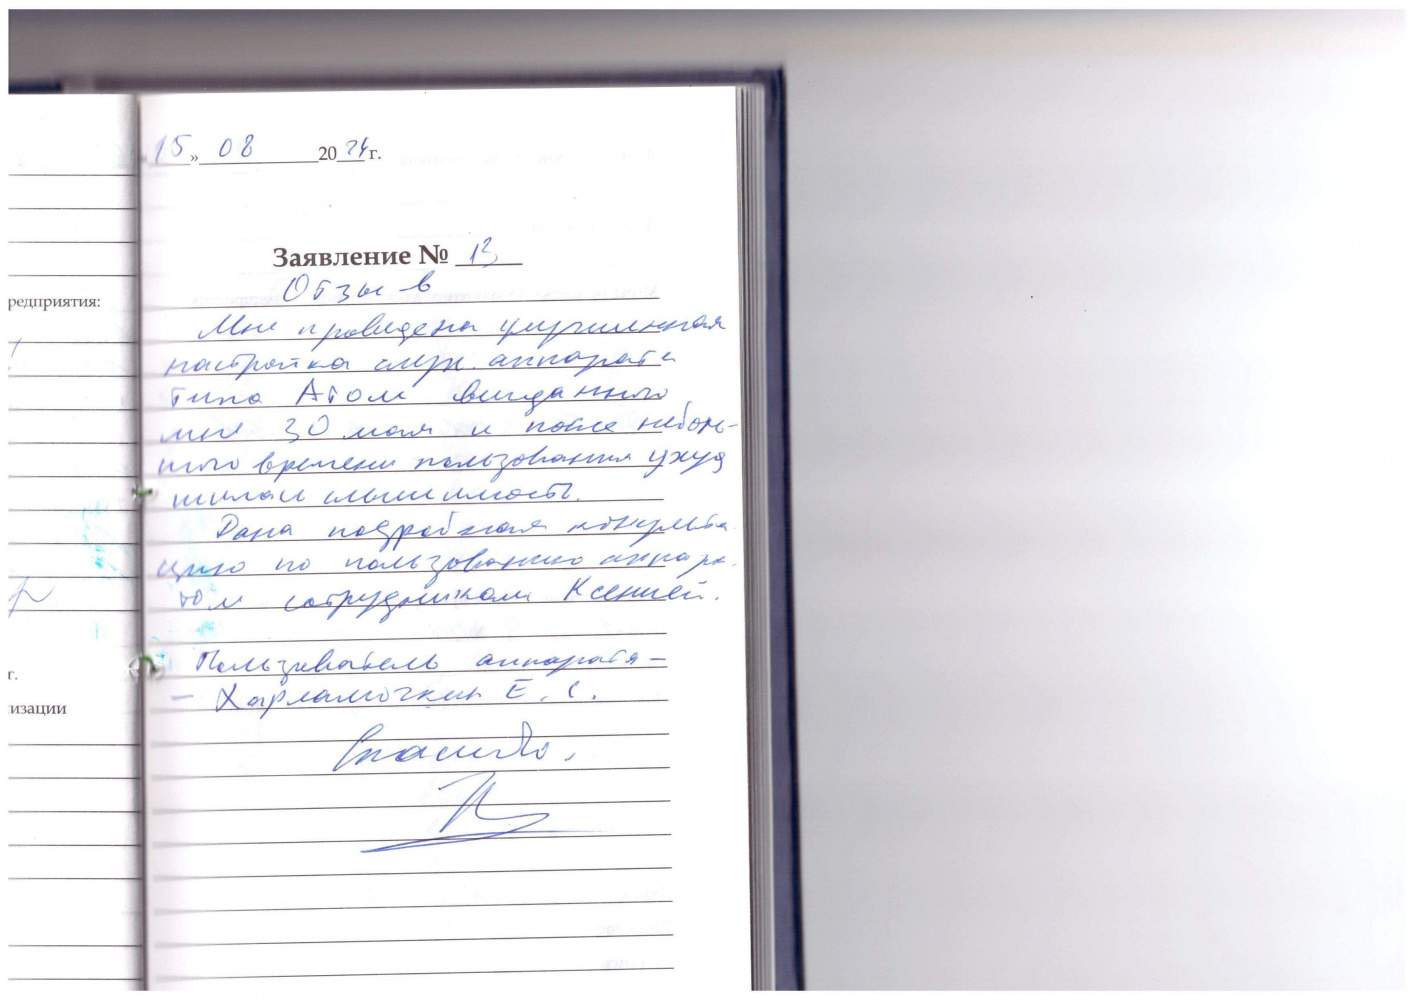 15 » 08 20 24 г.
Заявление № 13
Отзыв
редприятия:
Мне проведена улучшенная
настройка слух. аппарата
типа Атом выданного
мне 30 мая и после неболь-
шого времени пользования ухуд
шилась слышимость.
Дана подробная консульта
цию по пользованию аппара-
том сотрудником Ксенией.
Пользователь аппарата –
г.
– Харламочкин Е. С.
изации
Спасибо.